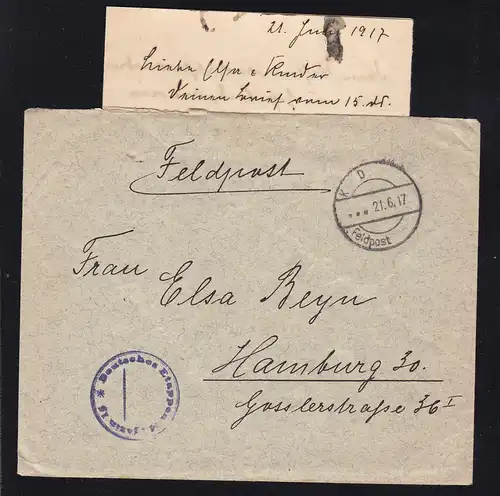 21. Juni 1917
Liebe Elsa & Kinder
Deinen Brief vom 15. ds.
Feldpost
K D
*** 21.6.17
Feldpost
Frau
Elsa Beyn
Hamburg 30.
Gosslerstraße 36 I
* Deutsches Etappen
azin 15